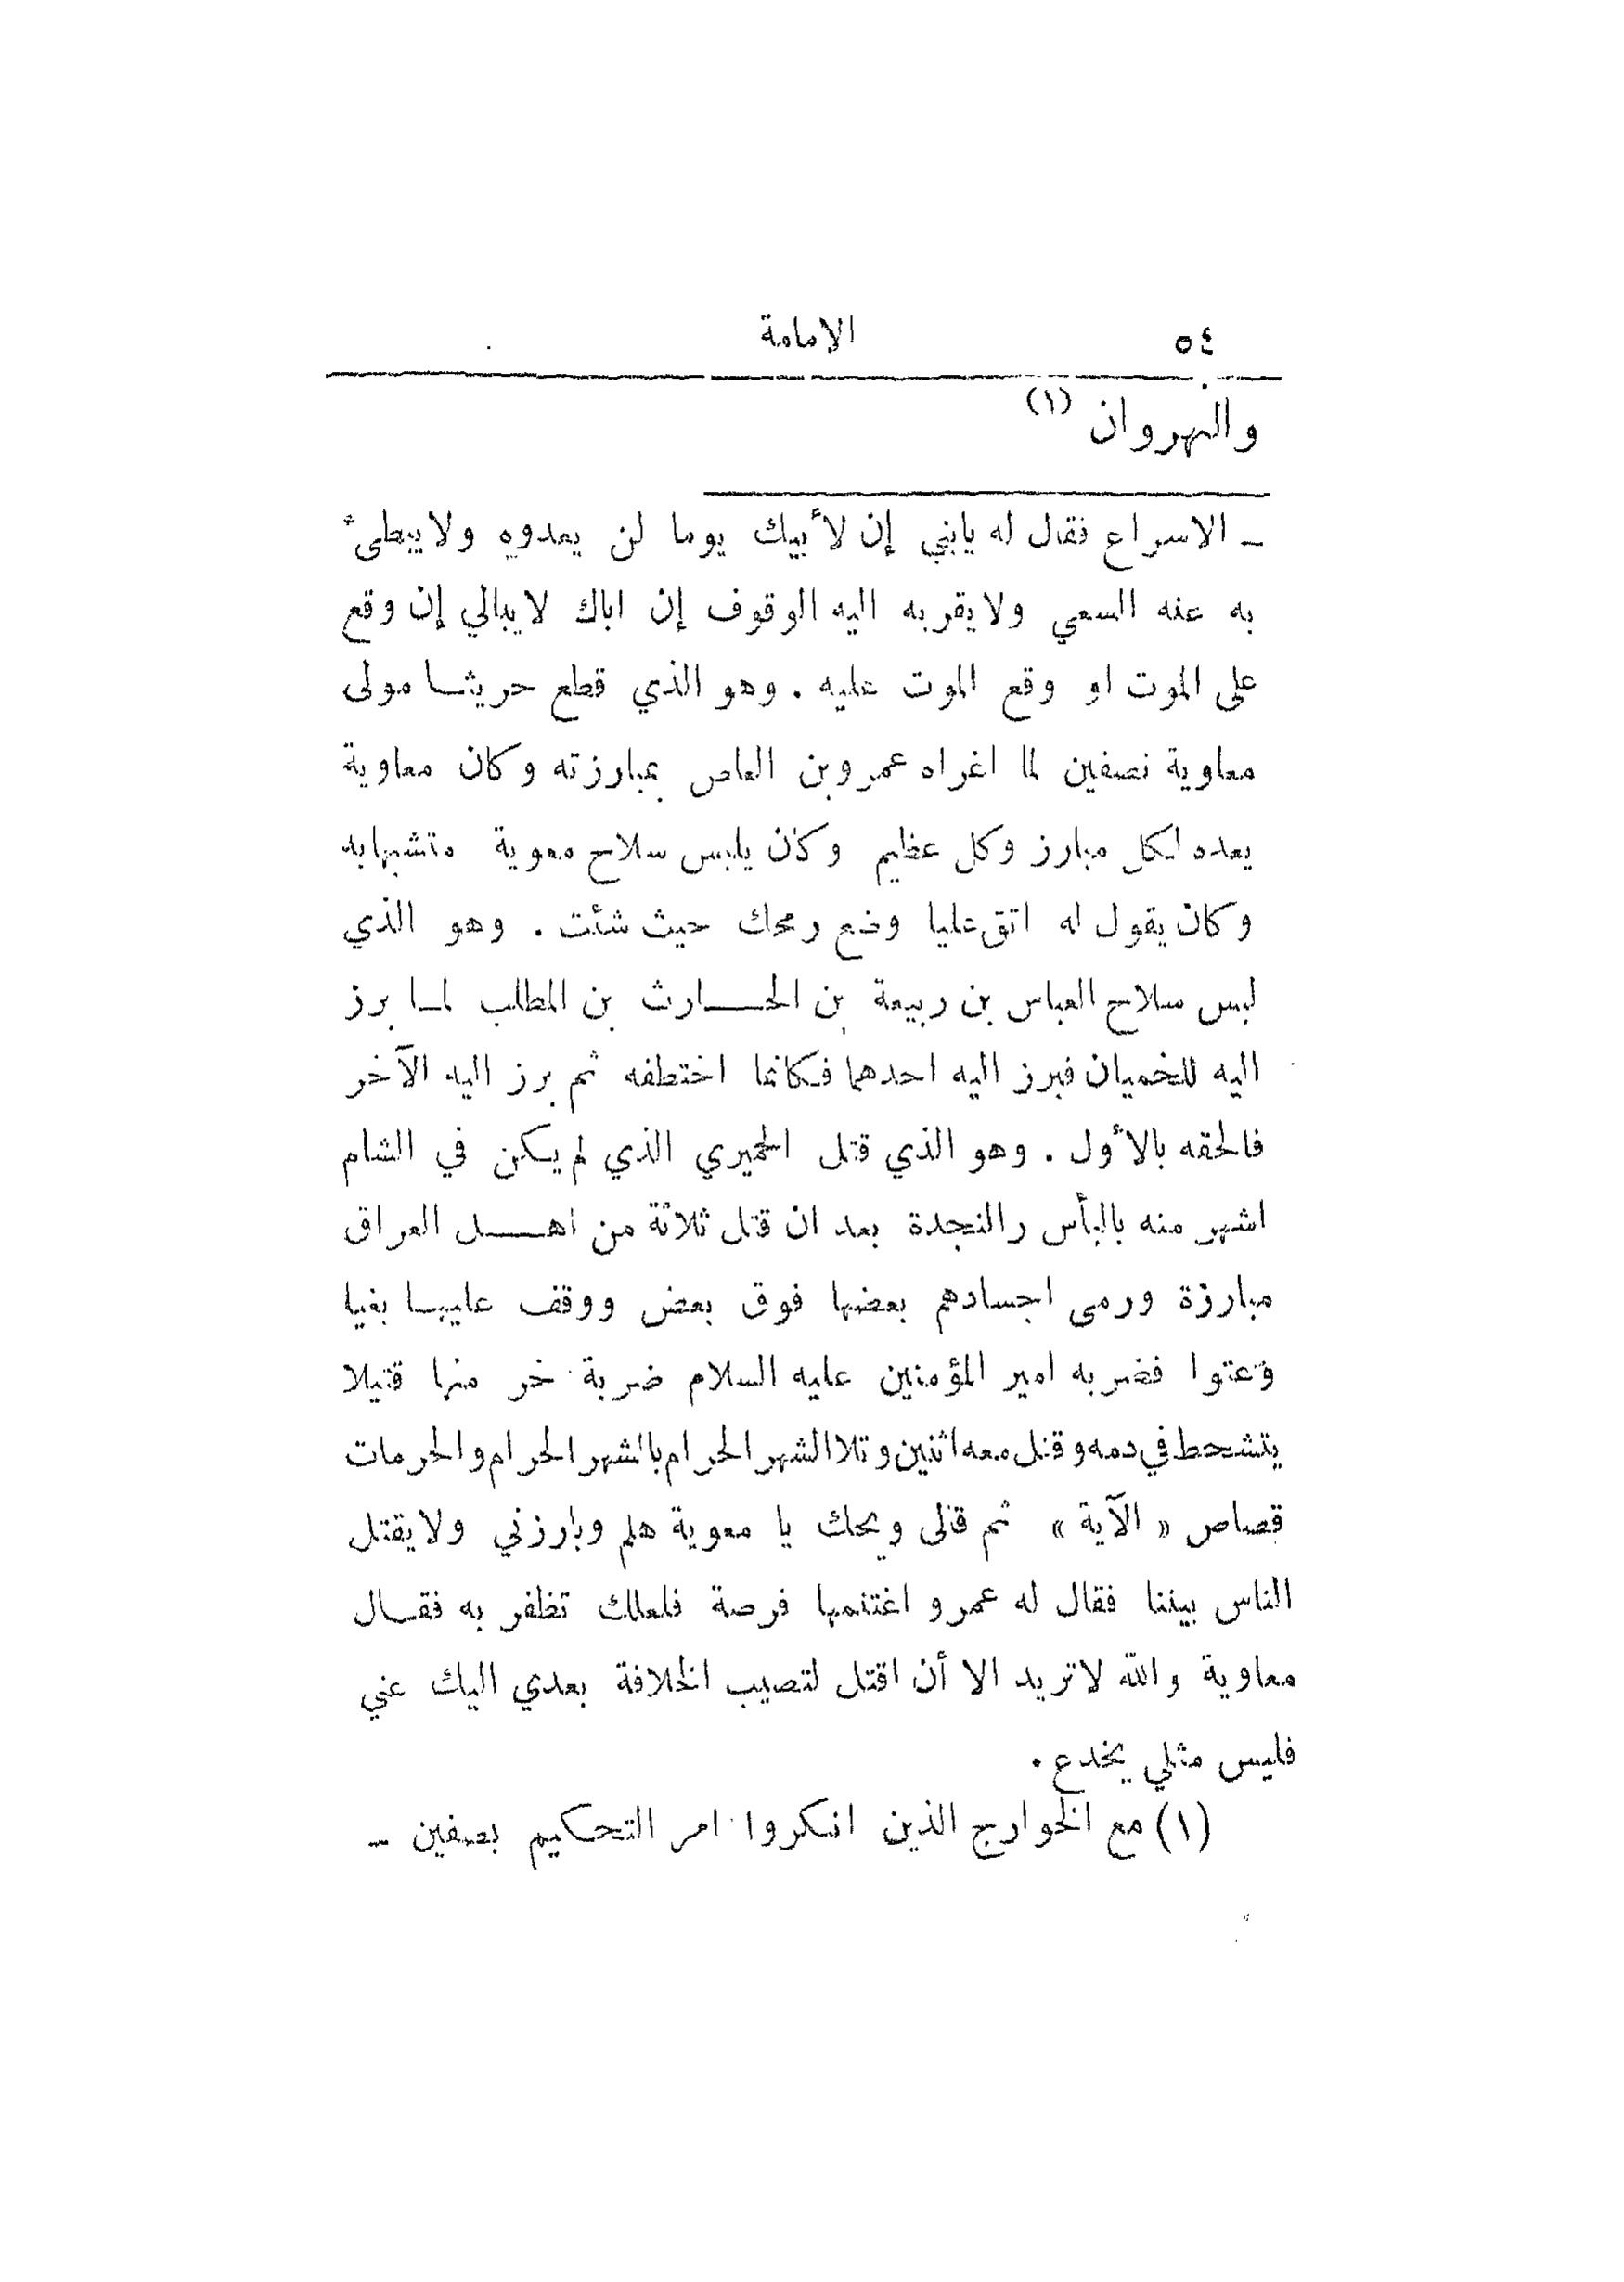 ٥٤ الإمامة
والنهروان (١)
ـ الاسراع فقال له يابني إن لأبيك يوما لن يعدوه ولايبطىء
به عنه السعي ولايقربه اليه الوقوف إن اباك لايبالي إن وقع
على الموت او وقع الموت عليه . وهو الذي قطع حريثا مولى
معاوية نصفين لما اغراه عمروبن العاص بمبارزته وكان معاوية
يعده لكل مبارز وكل عظيم وكان يلبس سلاح معوية متشبهابه
وكان يقول له اتق عليا وضع رمحك حيث شئت . وهو الذي
لبس سلاح العباس بن ربيعة بن الحارث بن المطلب لما برز
اليه للخميان فبرز اليه احدهما فكانما اختطفه ثم برز اليه الآخر
فالحقه بالأول . وهو الذي قتل الحميري الذي لم يكن في الشام
اشهر منه بالبأس رالنجدة بعد ان قتل ثلاثة من اهل العراق
مبارزة ورمى اجسادهم بعضها فوق بعض ووقف عليها بغيا
وعتوا فضربه امير المؤمنين عليه السلام ضربة خر منها قتيلا
يتشحط في دمه وقتل معه اثنين وتلا الشهر الحرام بالشهر الحرام والحرمات
قصاص « الآية » ثم قالى ويحك يا معوية هلم وبارزني ولايقتل
الناس بيننا فقال له عمرو اغتنمها فرصة فلعلك تظفر به فقال
معاوية والله لاتريد الا أن اقتل لتصيب الخلافة بعدي اليك عني
فليس مثلي يخدع .
(١) مع الخوارج الذين انكروا امر التحكيم بصفين ـ